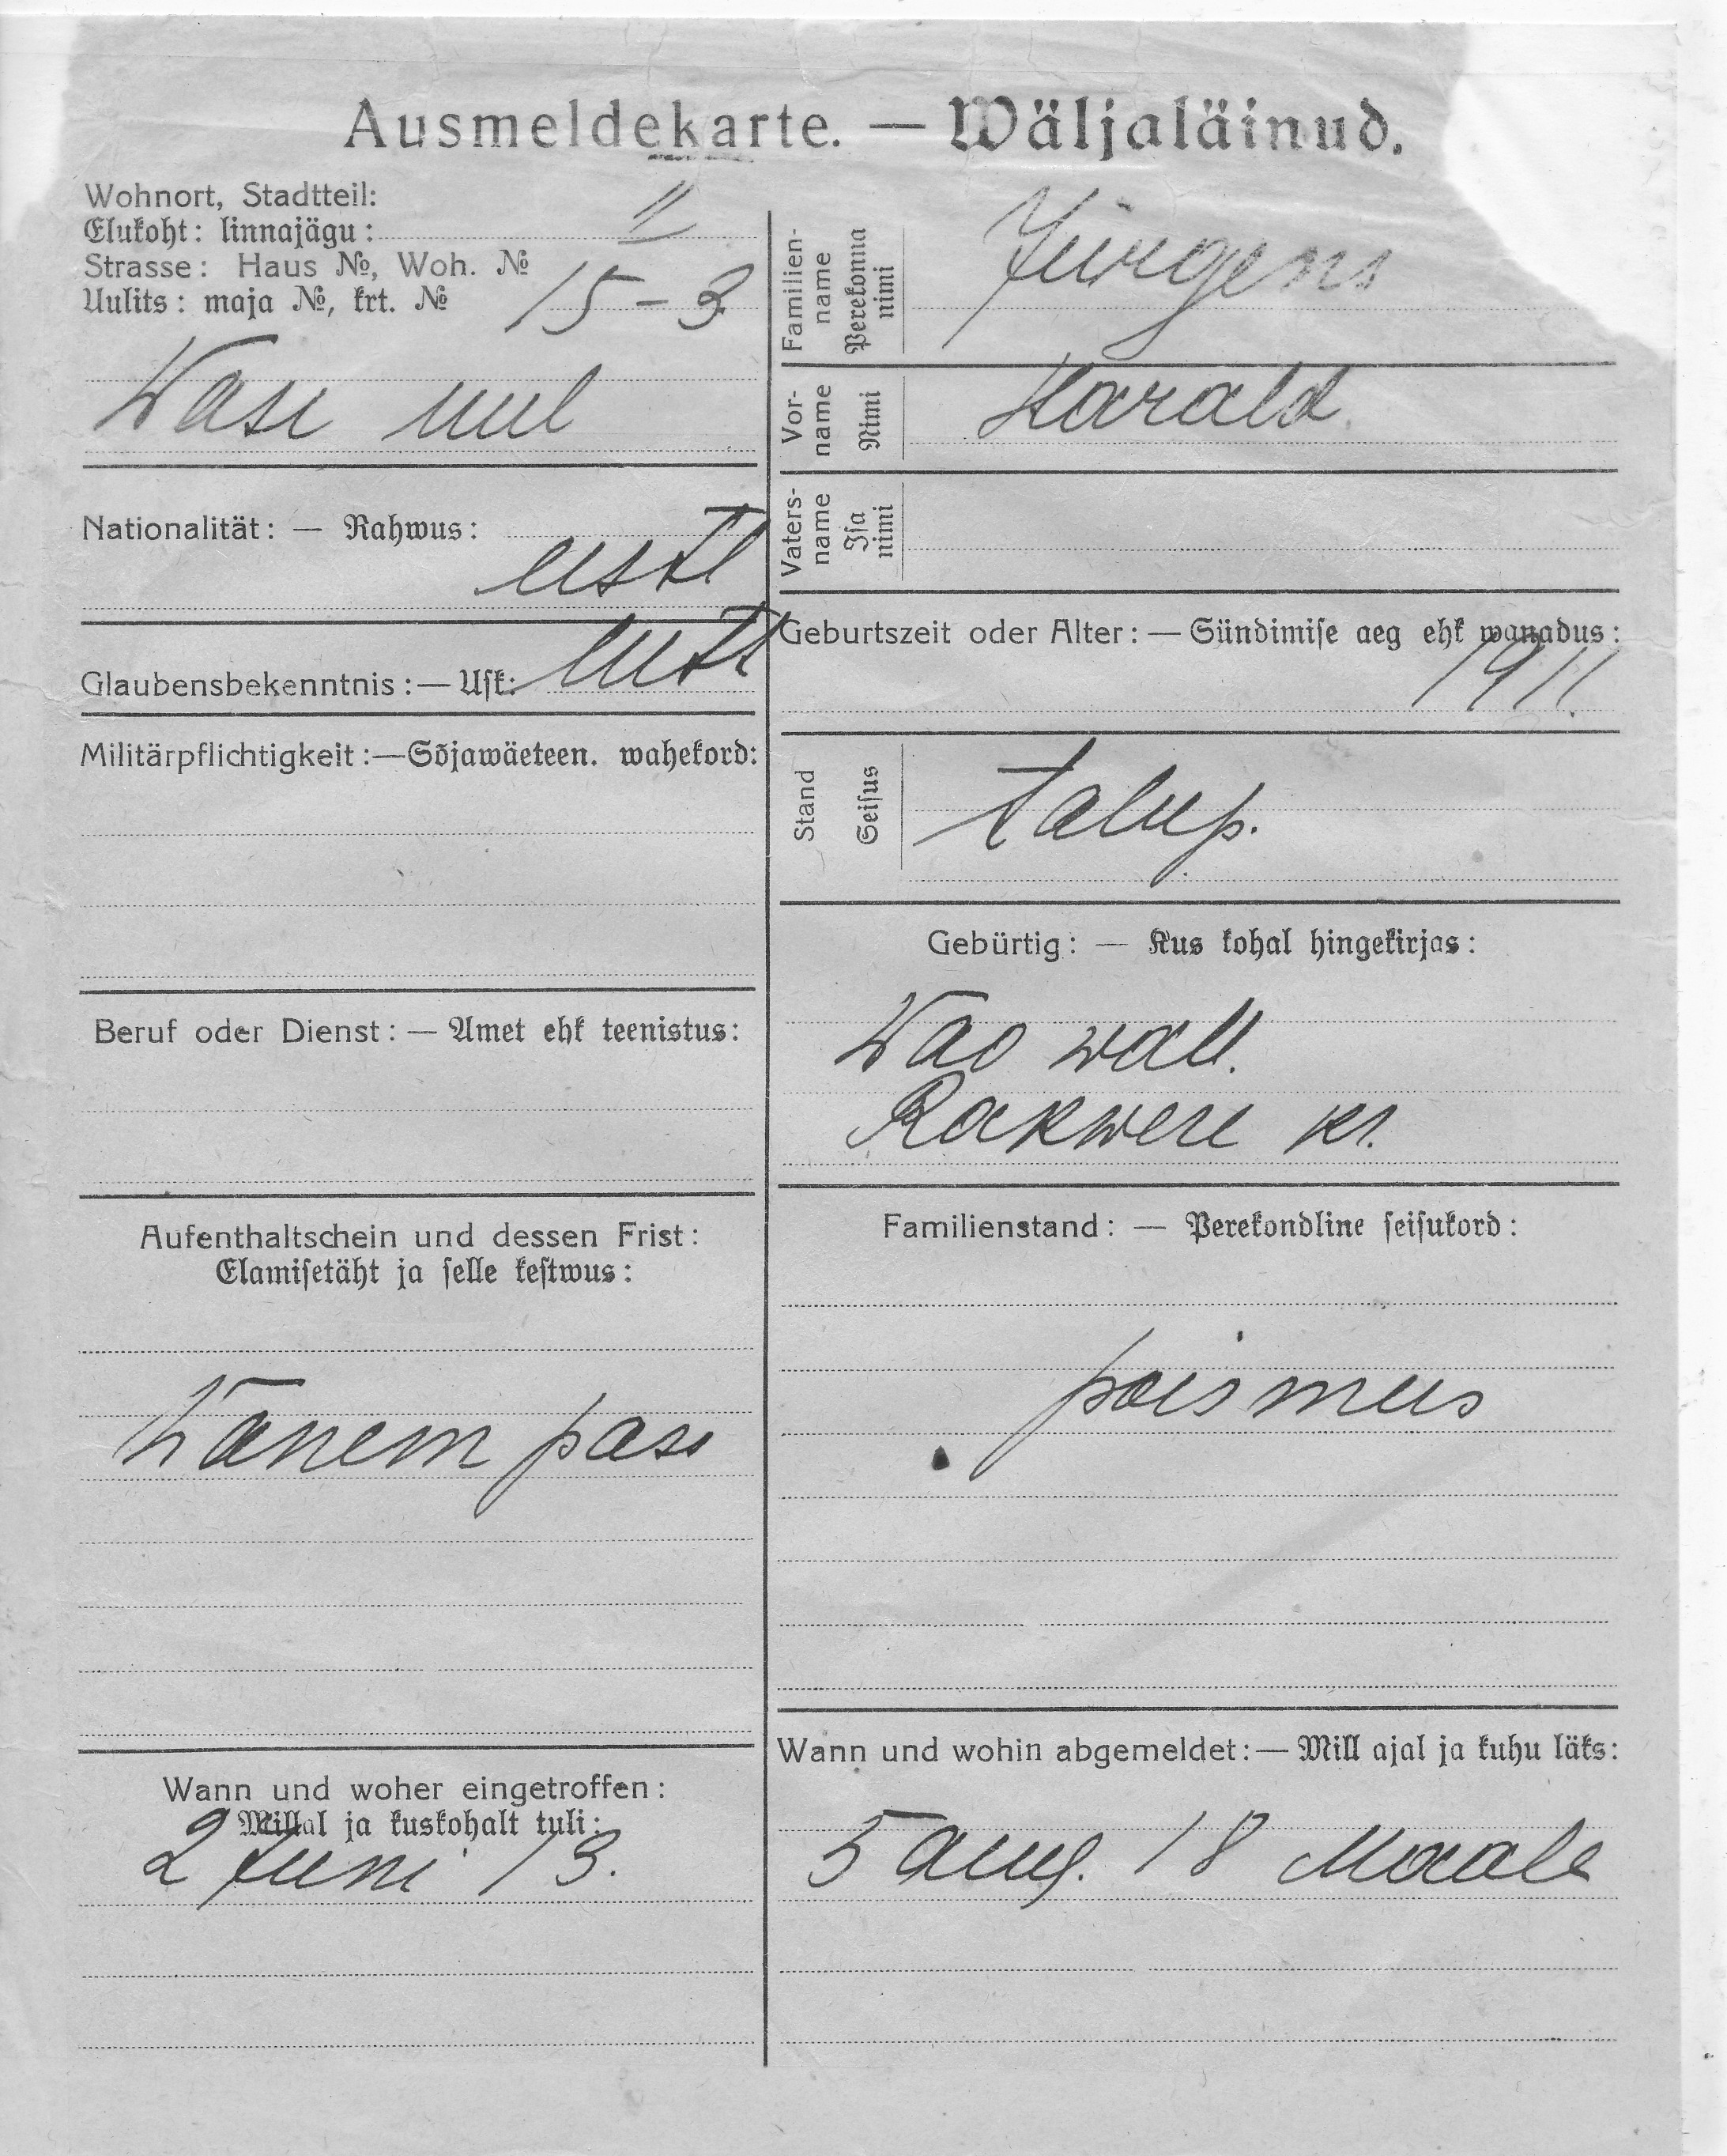 Ausmeldekarte. — Wäljaläinud.
Wohnort, Stadtteil:
Elukoht: linnajägu: II
Strasse: Haus №, Woh. №
Uulits: maja №, krt. № 15-3
Wase uul
Nationalität: — Rahwus:
eestl
Glaubensbekenntnis: — Usk: lutr
Militärpflichtigkeit: — Sõjawäeteen. wahekord:
Beruf oder Dienst: — Amet ehk teenistus:
Aufenthaltschein und dessen Frist:
Elamisetäht ja selle kestwus:
Wanem pass
Wann und woher eingetroffen:
Millal ja kuskohalt tuli:
2 Juni 13.
Familien-
name
Perekonna
nimi
Jürgens
Vor-
name
Nimi
Harald
Vaters-
name
Isa
nimi
Geburtszeit oder Alter: — Sündimise aeg ehk wanadus:
1911.
Stand
Seisus
talup.
Gebürtig: — Kus kohal hingekirjas:
Wao wall.
Rakwere kr.
Familienstand: — Perekondline seisukord:
poismees
Wann und wohin abgemeldet: — Mill ajal ja kuhu läks:
5 aug. 18 Maale